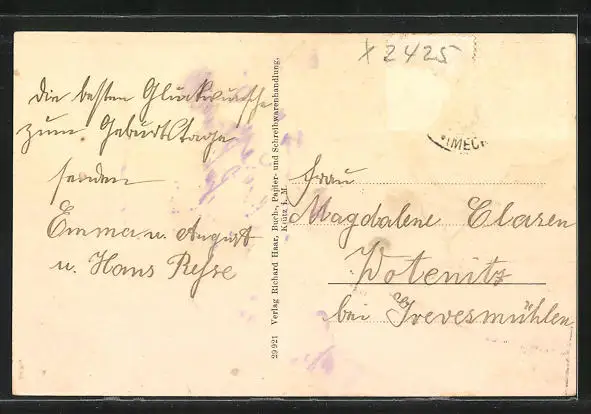 x 2425
die besten Glückwünsche
zum Geburtstage
senden
Emma u. August
u. Hans Rehse
29921 Verlag Richard Haar, Buch-, Papier- und Schreibwarenhandlung,
Klütz i. M.
(MECK
Frau
Magdalene Clasen
Wotenitz
bei Grevesmühlen